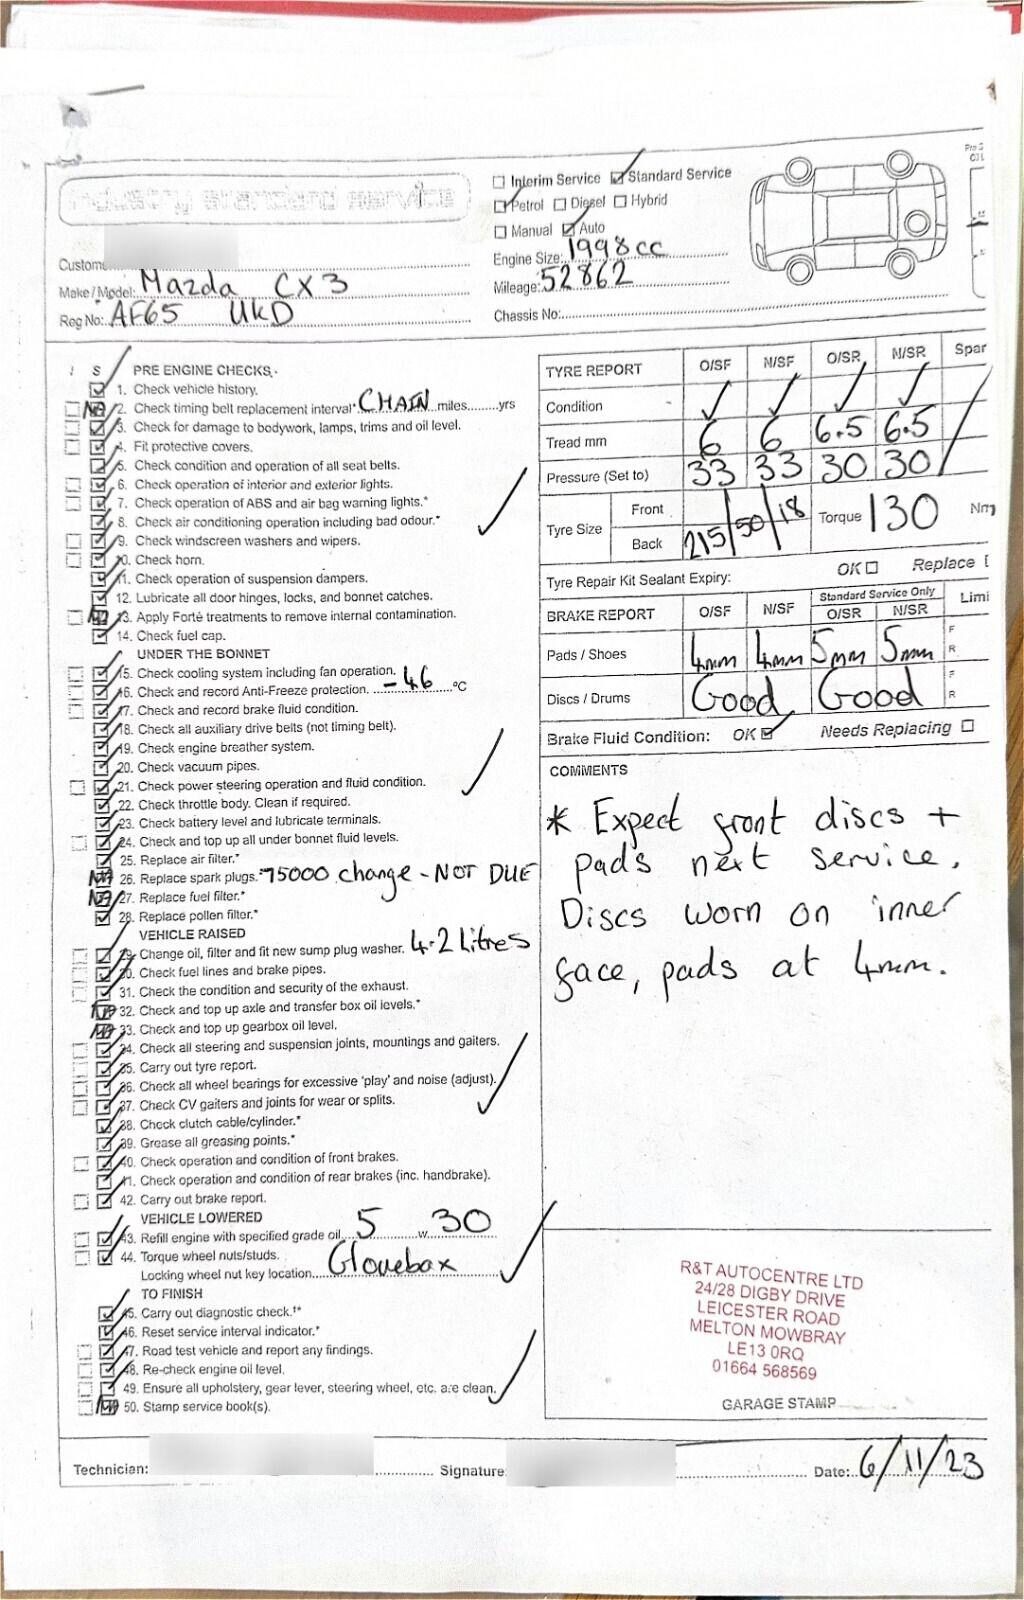 Interim Service Standard Service
Petrol Diesel Hybrid
Manual Auto
Engine Size: 1998cc
Mileage: 52862
Chassis No:
Custome
Make / Model: Mazda CX3
Reg No: AF65 UKD
I S PRE ENGINE CHECKS
1. Check vehicle history.
NA 2. Check timing belt replacement interval* CHAIN miles yrs
3. Check for damage to bodywork, lamps, trims and oil level.
4. Fit protective covers.
5. Check condition and operation of all seat belts.
6. Check operation of interior and exterior lights.
7. Check operation of ABS and air bag warning lights.*
8. Check air conditioning operation including bad odour.*
9. Check windscreen washers and wipers.
10. Check horn.
11. Check operation of suspension dampers.
12. Lubricate all door hinges, locks, and bonnet catches.
NA 13. Apply Forté treatments to remove internal contamination.
14. Check fuel cap.
UNDER THE BONNET
15. Check cooling system including fan operation.
16. Check and record Anti-Freeze protection. -46 °C
17. Check and record brake fluid condition.
18. Check all auxiliary drive belts (not timing belt).
19. Check engine breather system.
20. Check vacuum pipes.
21. Check power steering operation and fluid condition.
22. Check throttle body. Clean if required.
23. Check battery level and lubricate terminals.
24. Check and top up all under bonnet fluid levels.
25. Replace air filter.*
NA 26. Replace spark plugs.* 75000 change - NOT DUE
NA 27. Replace fuel filter.*
28. Replace pollen filter.*
VEHICLE RAISED
29. Change oil, filter and fit new sump plug washer. 4.2 Litres
30. Check fuel lines and brake pipes.
31. Check the condition and security of the exhaust.
NA 32. Check and top up axle and transfer box oil levels.*
NA 33. Check and top up gearbox oil level.
34. Check all steering and suspension joints, mountings and gaiters.
35. Carry out tyre report.
36. Check all wheel bearings for excessive 'play' and noise (adjust).
37. Check CV gaiters and joints for wear or splits.
38. Check clutch cable/cylinder.*
39. Grease all greasing points.*
40. Check operation and condition of front brakes.
41. Check operation and condition of rear brakes (inc. handbrake).
42. Carry out brake report.
VEHICLE LOWERED
43. Refill engine with specified grade oil 5 w 30
44. Torque wheel nuts/studs.
Locking wheel nut key location Glovebox
TO FINISH
45. Carry out diagnostic check.†*
46. Reset service interval indicator.*
47. Road test vehicle and report any findings.
48. Re-check engine oil level.
49. Ensure all upholstery, gear lever, steering wheel, etc. are clean.
NA 50. Stamp service book(s).
TYRE REPORT O/SF N/SF O/SR N/SR Spar
Condition
Tread mm 6 6 6.5 6.5
Pressure (Set to) 33 33 30 30
Tyre Size Front Back 215/50/18 Torque 130 Nm
Tyre Repair Kit Sealant Expiry: OK Replace
Standard Service Only
BRAKE REPORT O/SF N/SF O/SR N/SR Limi
Pads / Shoes 4mm 4mm 5mm 5mm F R
Discs / Drums Good Good F R
Brake Fluid Condition: OK Needs Replacing
COMMENTS
* Expect front discs +
pads next service.
Discs worn on inner
face, pads at 4mm.
R&T AUTOCENTRE LTD
24/28 DIGBY DRIVE
LEICESTER ROAD
MELTON MOWBRAY
LE13 0RQ
01664 568569
GARAGE STAMP
Technician: Signature: Date: 6/11/23